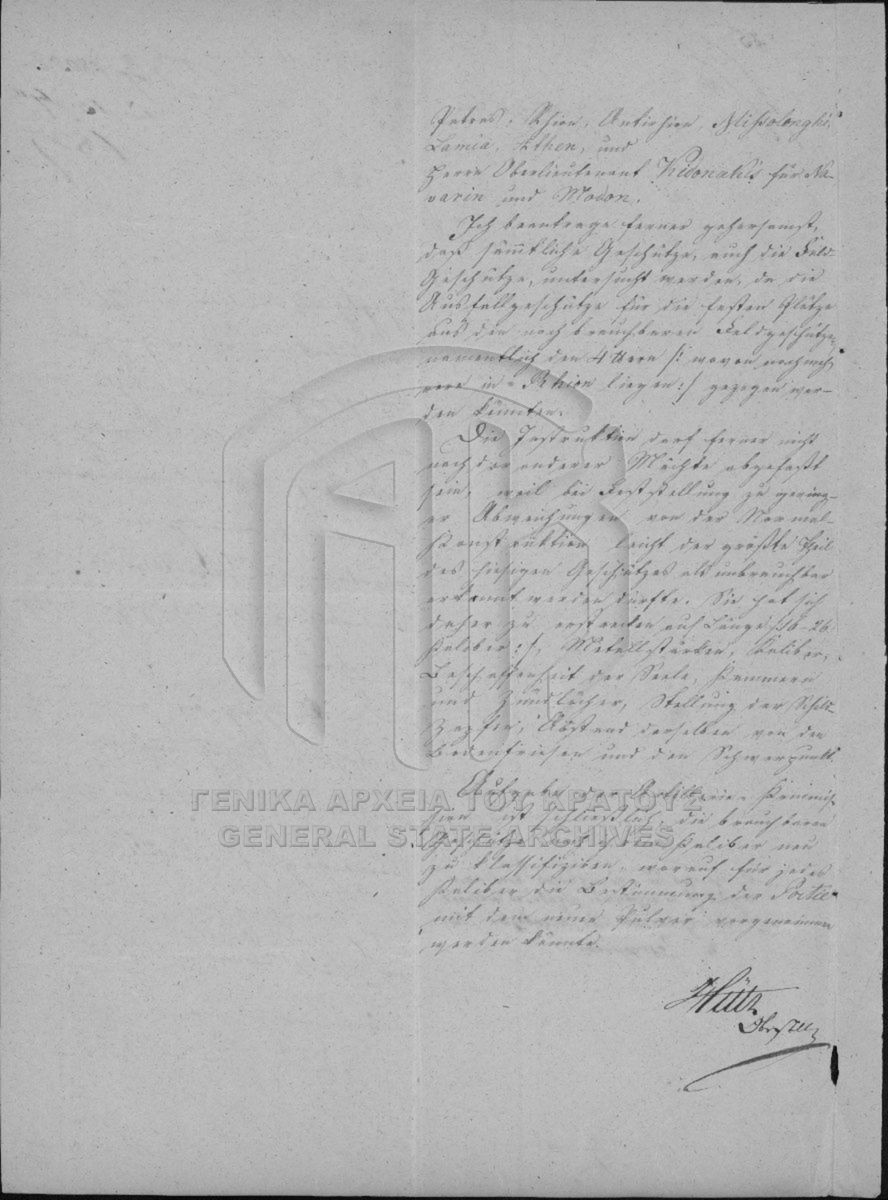 Patras, Rhion, Antirhion, Missolonghi,
Lamia, Athen, und
Herrn Oberlieutenant Kidonakis für Na-
varin und Modon.
Ich beantrage ferner gehorsamst,
daß sämmtliche Geschütze, auch die Feld-
Geschütze, untersucht werden, da die
Ausfallgeschütze für die festen Plätze
aus den noch brauchbaren Feldgeschütze
namentlich den 4 Uern /: wovon noch meh-
rere in Rhion liegen :/ gezogen wer-
den könnten.
Die Instruktion darf ferner nicht
nach der anderer Mächte abgefaßt
sein, weil bei Feststellung zu gering-
er Abweichungen von der Normal-
Konstruktion leicht der größte Theil
des hiesigen Geschützes als unbrauchbar
erkannt werden dürfte. Sie hat sich
daher zu erstrecken auf Länge 16-26
Kaliber :/, Metallstärken, Kaliber,
Beschaffenheit der Seele, Kammern
und Zündlöcher, Stellung der Schild-
Zapfen, Abstand derselben von den
Bodenfriesen und den Schwerpunkt.
Aufgabe der Artillerie-Kommis-
sion ist schließlich, die brauchbaren
Kaliber neu
zu klassifiziren, worauf für jedes
Kaliber die Bestimmung der
mit dem neuen Pulver vorgenommen
werden könnte.
Hütz
Obrstltn
ΓΕΝΙΚΑ ΑΡΧΕΙΑ ΤΟΥ ΚΡΑΤΟΥΣ
GENERAL STATE ARCHIVES